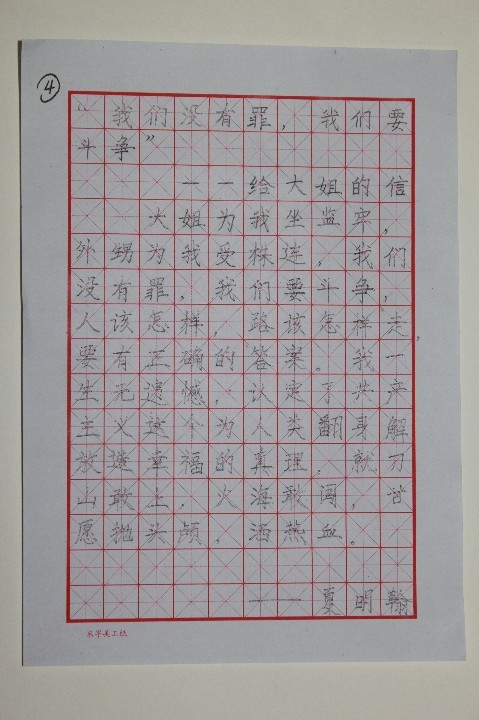 ④
“我们没有罪，我们要
斗争”
一一给大姐的信
大姐为我坐监牢，
外甥为我受株连，我们
没有罪，我们要斗争，
人该怎样，路该怎样走，
要有正确的答案。我一
生无遗憾，认定了共产
主义这个为人类翻身解
放造幸福的真理，就刀
山敢上，火海敢闯，甘
愿抛头颅，洒热血。
——夏明翰
米字美工纸